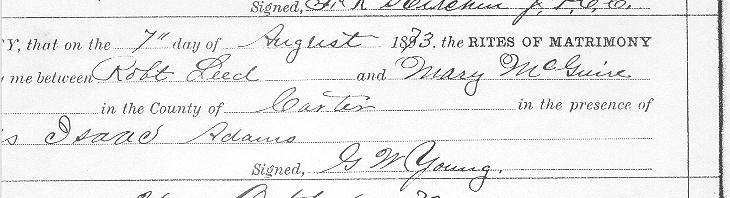 Signed,
CY, that on the 7" day of August 1873, the RITES OF MATRIMONY
me between Robt Leed and Mary McGuire
in the County of Carter in the presence of
s Isaac Adams
Signed, G W Young.